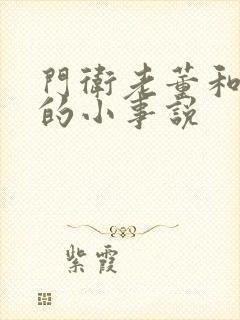 門衛老董和
的小事説
紫霞